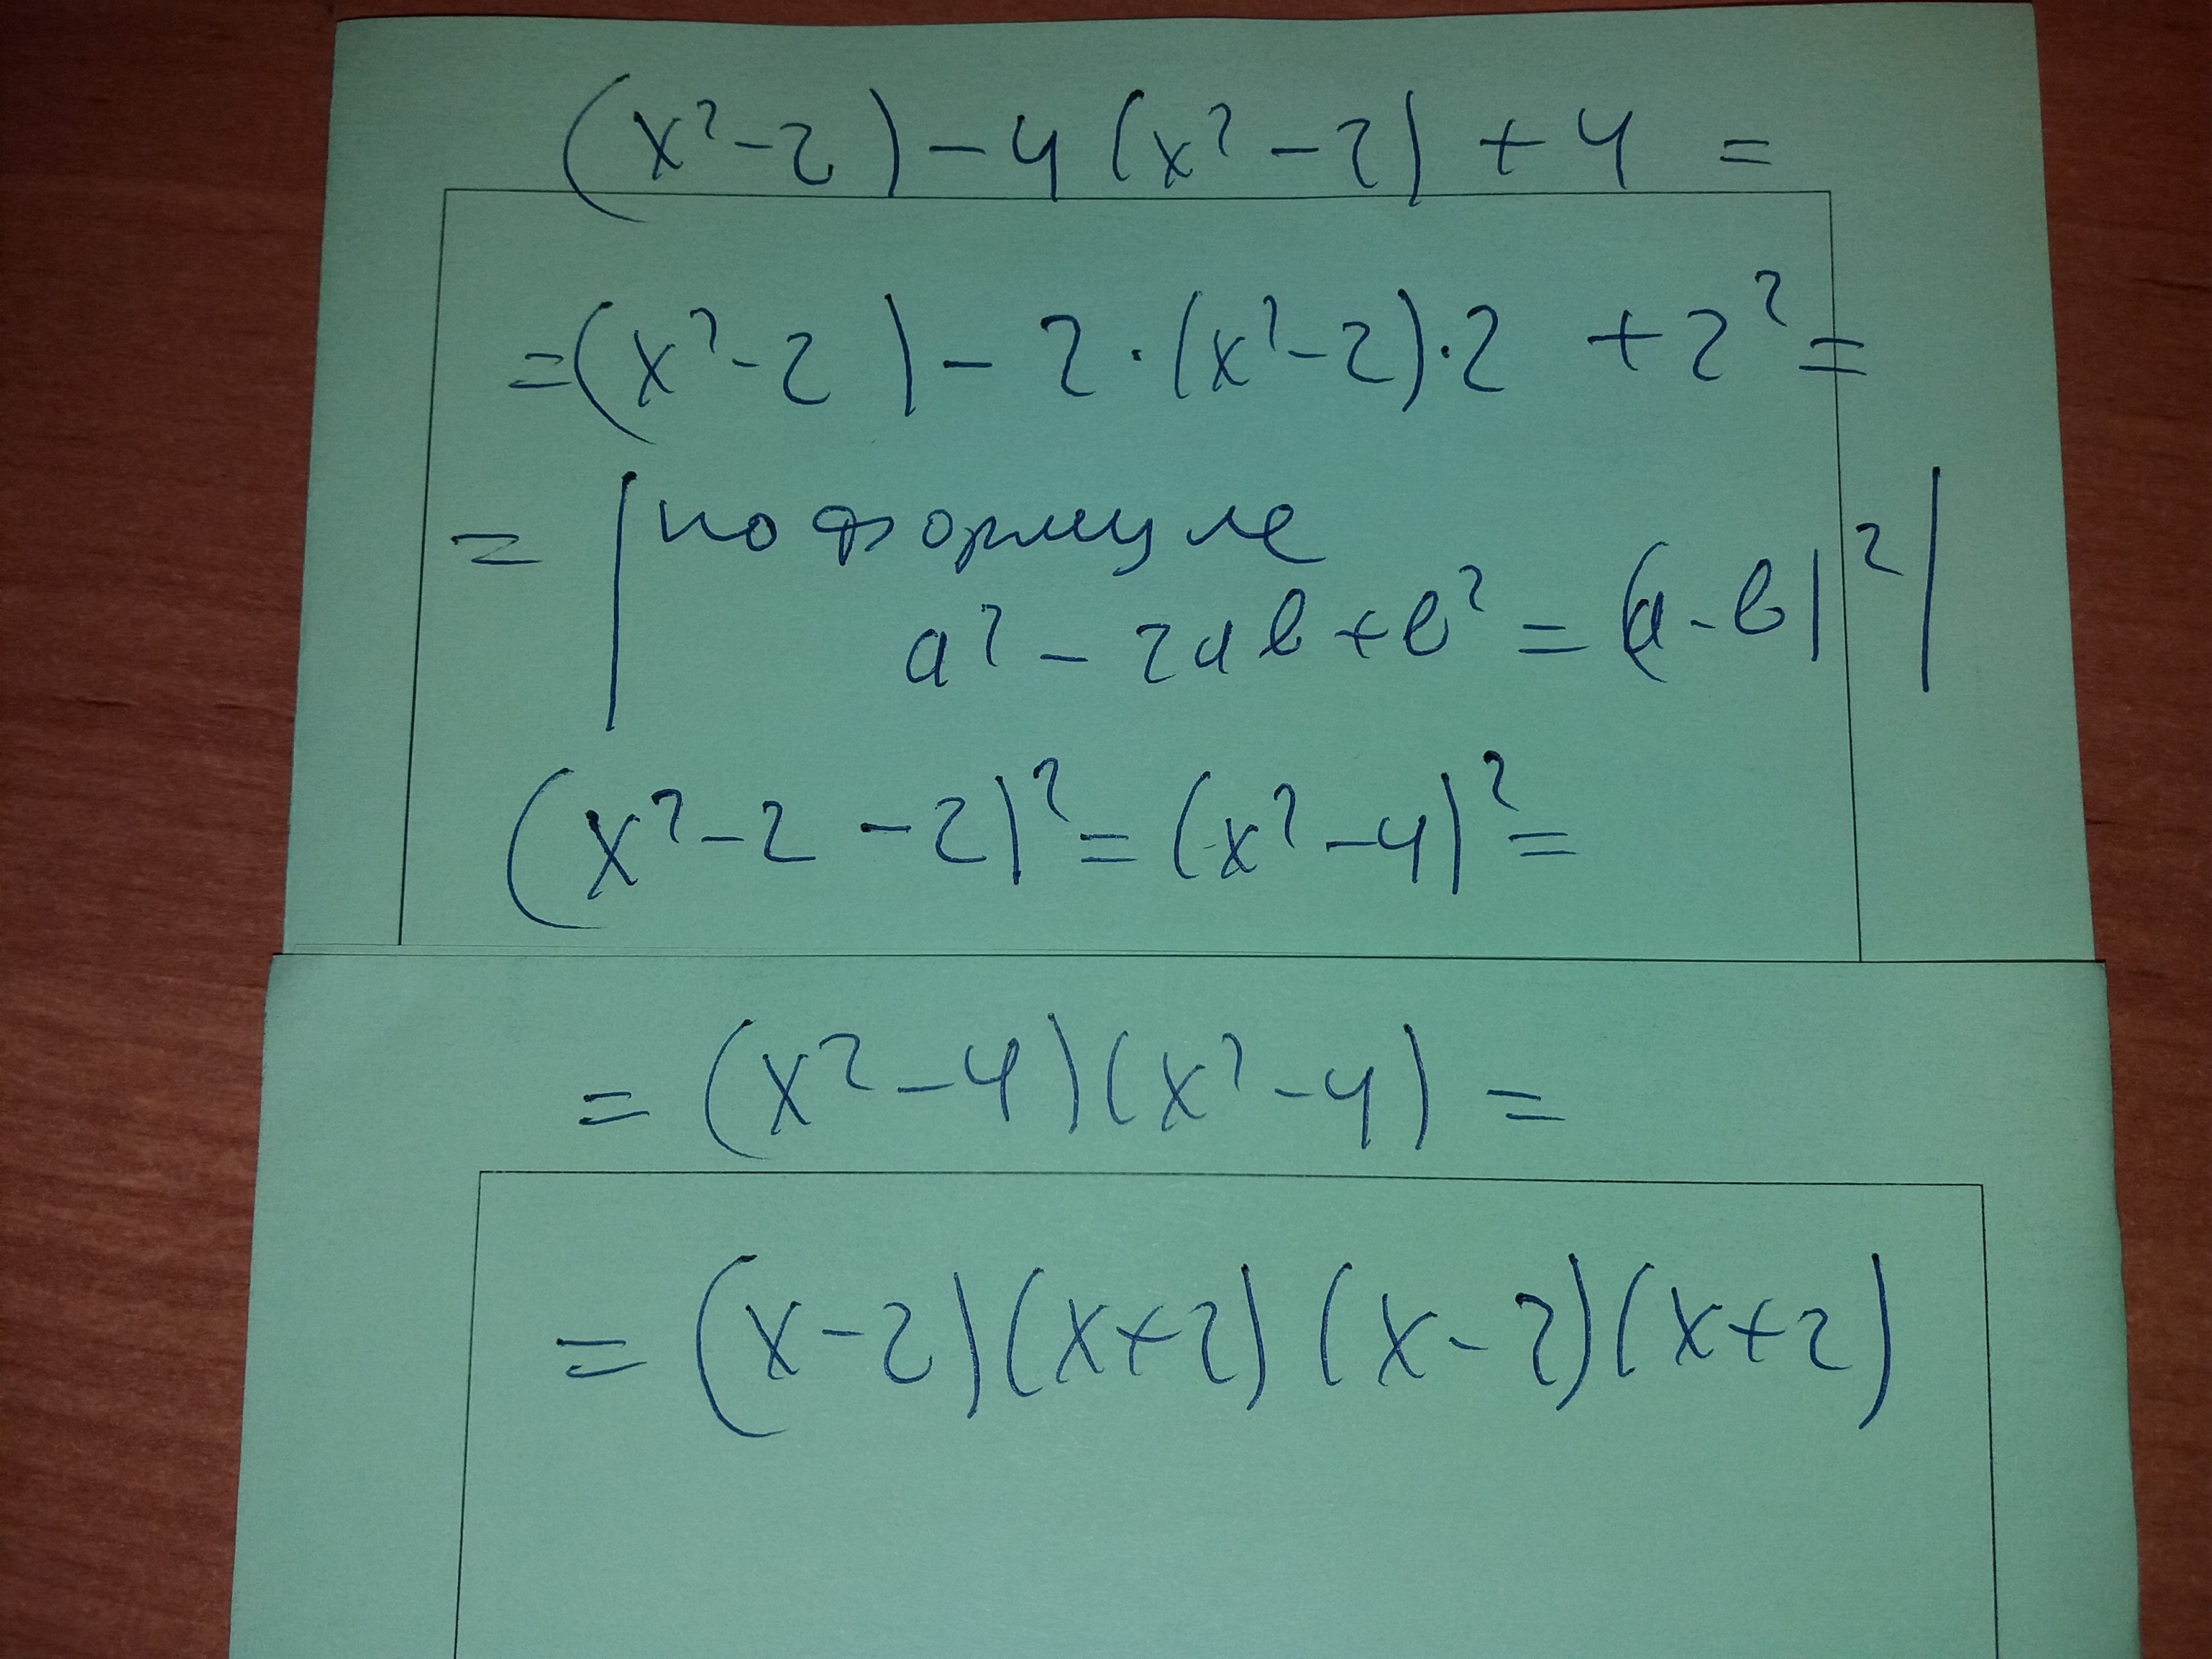 (x²-2) - 4 (x² - 2) + 4 =
= (x² - 2) - 2 · (x² - 2) · 2 + 2² =
= | по формуле
a² - 2ab + b² = (a - b)² |
(x² - 2 - 2)² = (x² - 4)² =
= (x² - 4)(x² - 4) =
= (x - 2)(x + 2)(x - 2)(x + 2)